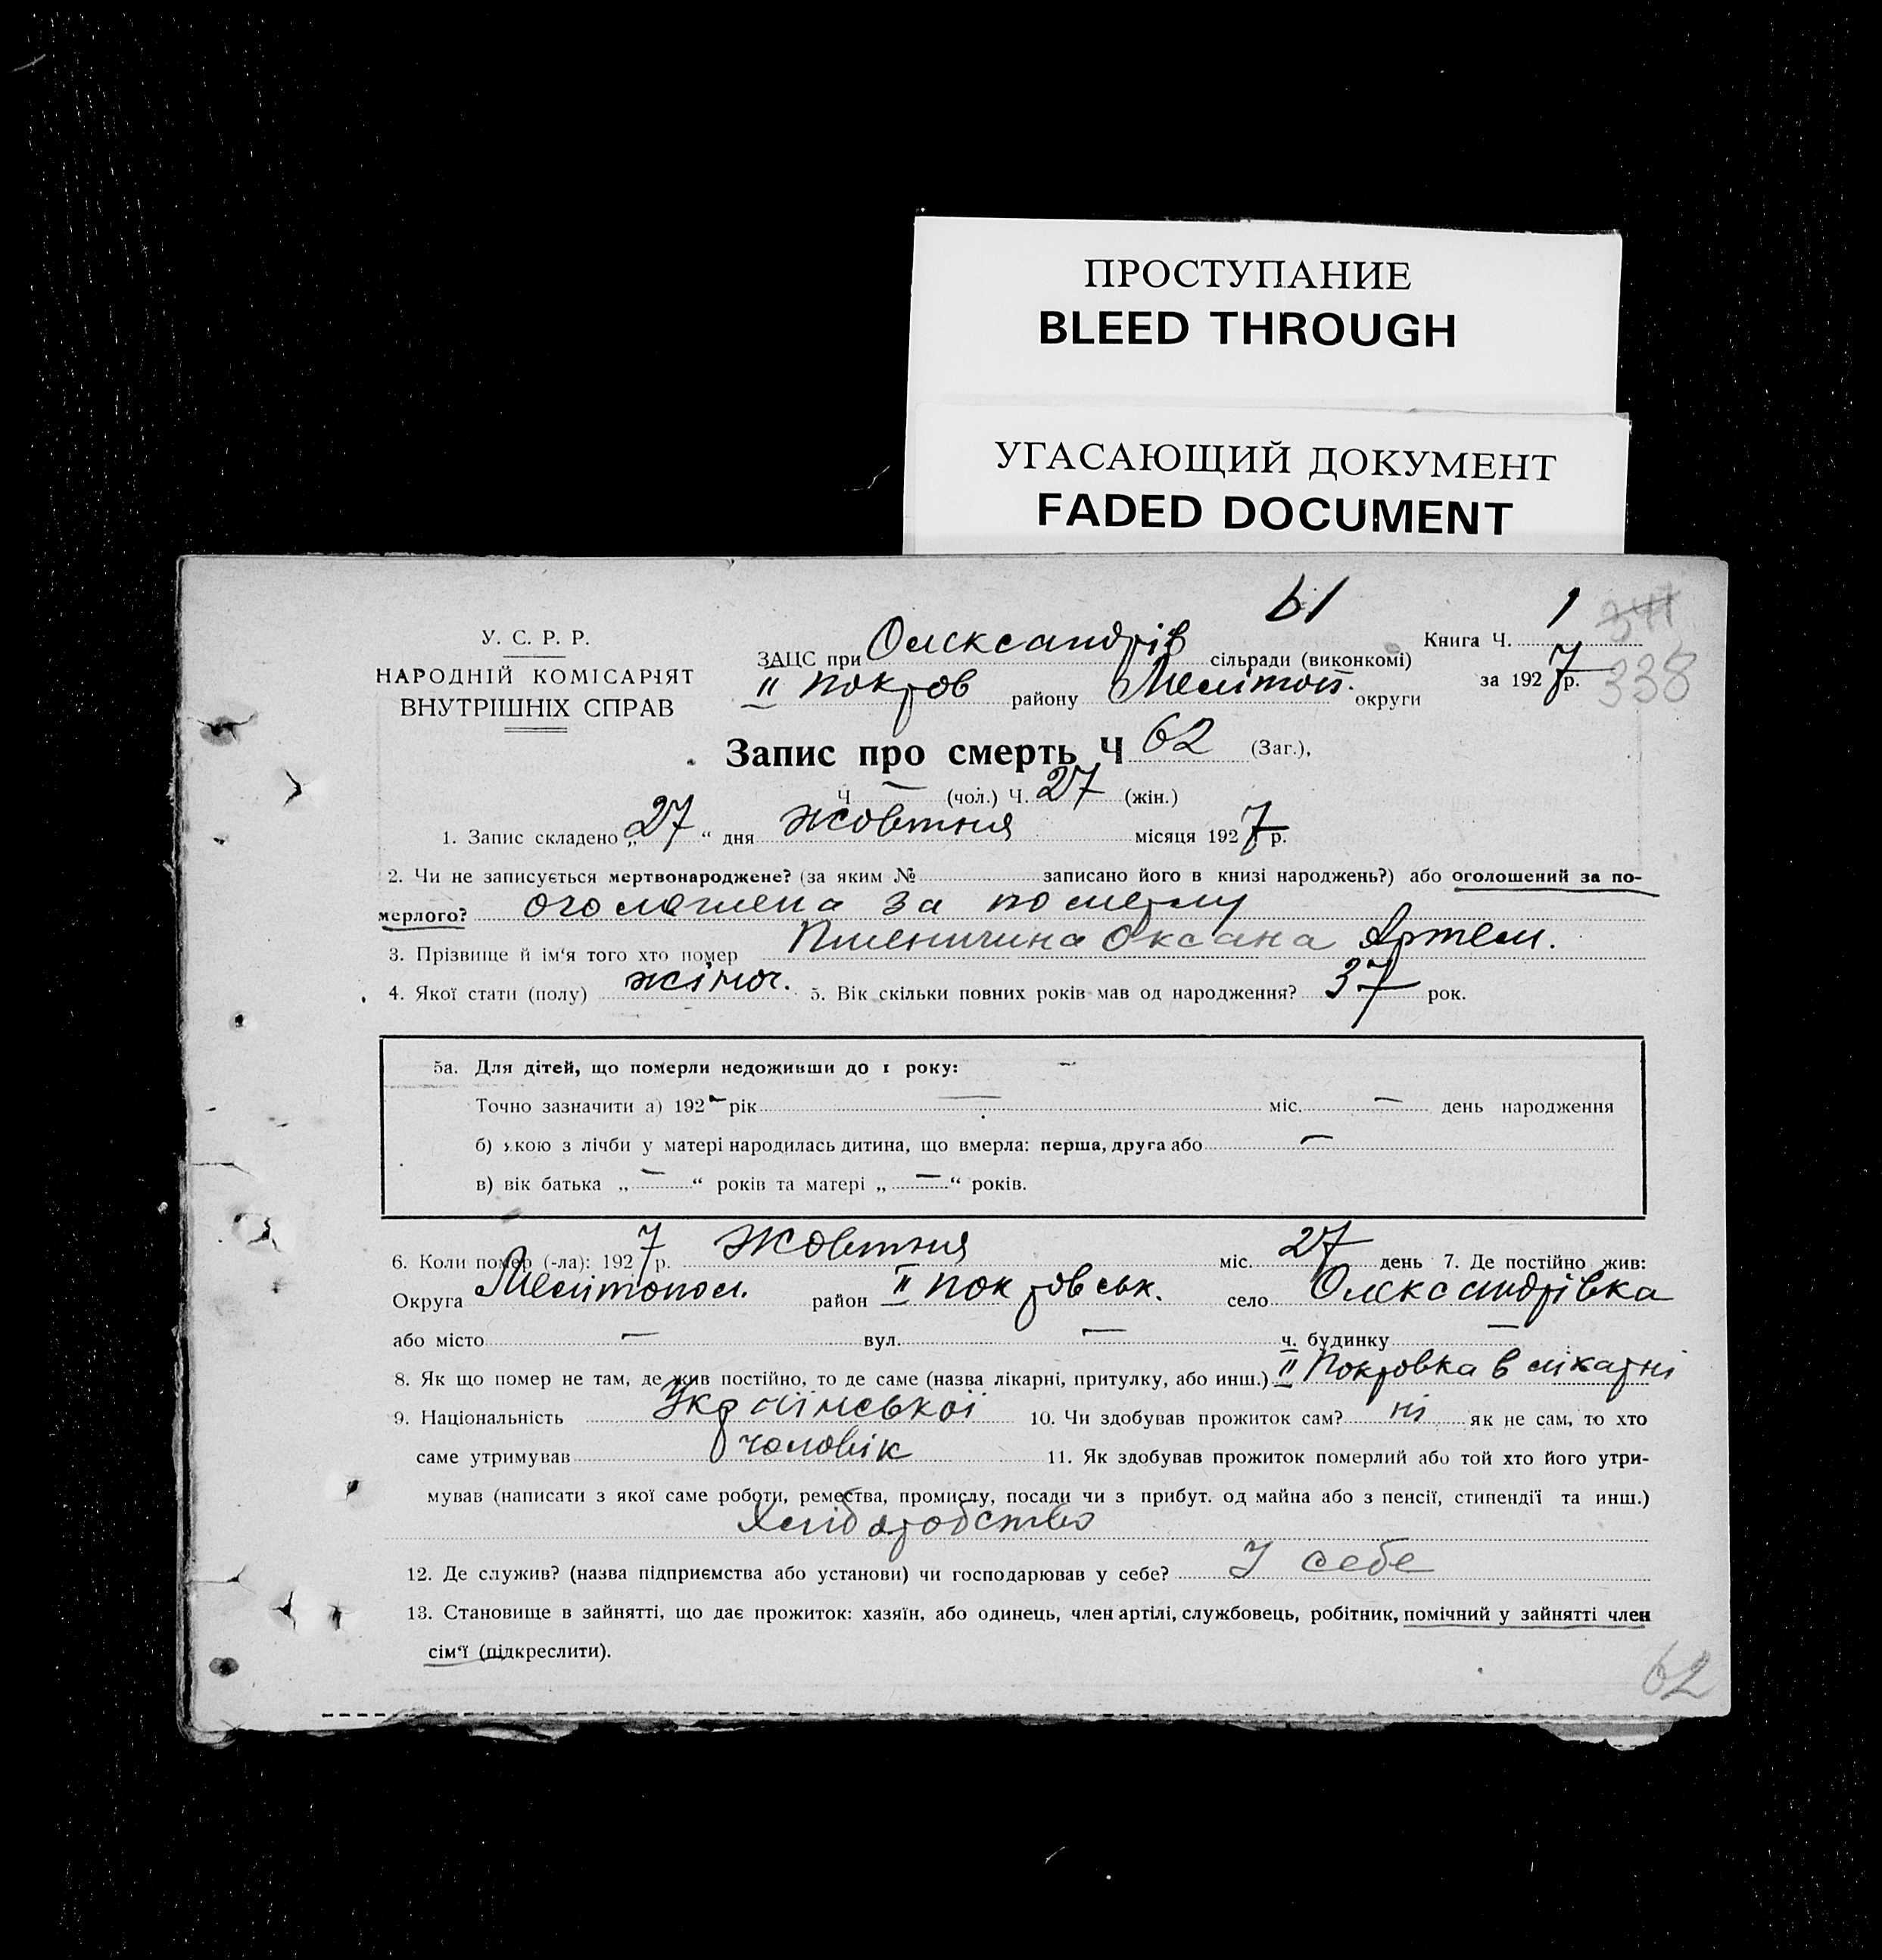 ПРОСТУПАНИЕ
BLEED THROUGH
УГАСАЮЩИЙ ДОКУМЕНТ
FADED DOCUMENT
61
У. С. Р. Р.
НАРОДНІЙ КОМІСАРІЯТ
ВНУТРІШНІХ СПРАВ
ЗАЦС при Олександрів сільради (виконкомі)
II Покров району Мелітоп. округи
Книга Ч. 1
341
за 1927 р. 338
Запис про смерть Ч 62 (Заг.),
Ч — (чол.) Ч. 27 (жін.)
1. Запис складено „27“ дня жовтня місяця 1927 р.
2. Чи не записується мертвонароджене? (за яким № записано його в книзі народжень?) або оголошений за по-
мерлого? оголошена за померлу
3. Прізвище й ім‘я того хто помер Пшенична Оксана Артем.
4. Якої стати (полу) жіноч. 5. Вік скільки повних років мав од народження? 37 рок.
5а. Для дітей, що померли недоживши до 1 року: —
Точно зазначити а) 192— рік — міс. — день народження
б) якою з лічби у матері народилась дитина, що вмерла: перша, друга або —
в) вік батька „—“ років та матері „—“ років.
6. Коли помер (-ла): 1927 р. Жовтня міс. 27 день 7. Де постійно жив:
Округа Мелітопол. район II Покровськ. село Олександрівка
або місто — вул. — ч. будинку —
8. Як що помер не там, де жив постійно, то де саме (назва лікарні, притулку, або инш.) II Покровка в лікарні
9. Національність Української 10. Чи здобував прожиток сам? ні як не сам, то хто
саме утримував чоловік 11. Як здобував прожиток померлий або той хто його утри-
мував (написати з якої саме роботи, ремества, промислу, посади чи з прибут. од майна або з пенсії, стипендії та инш.)
Хліборобство
12. Де служив? (назва підприємства або установи) чи господарював у себе? У себе
13. Становище в зайнятті, що дає прожиток: хазяїн, або одинець, член артілі, службовець, робітник, помічний у зайнятті член
сім‘ї (підкреслити).
62